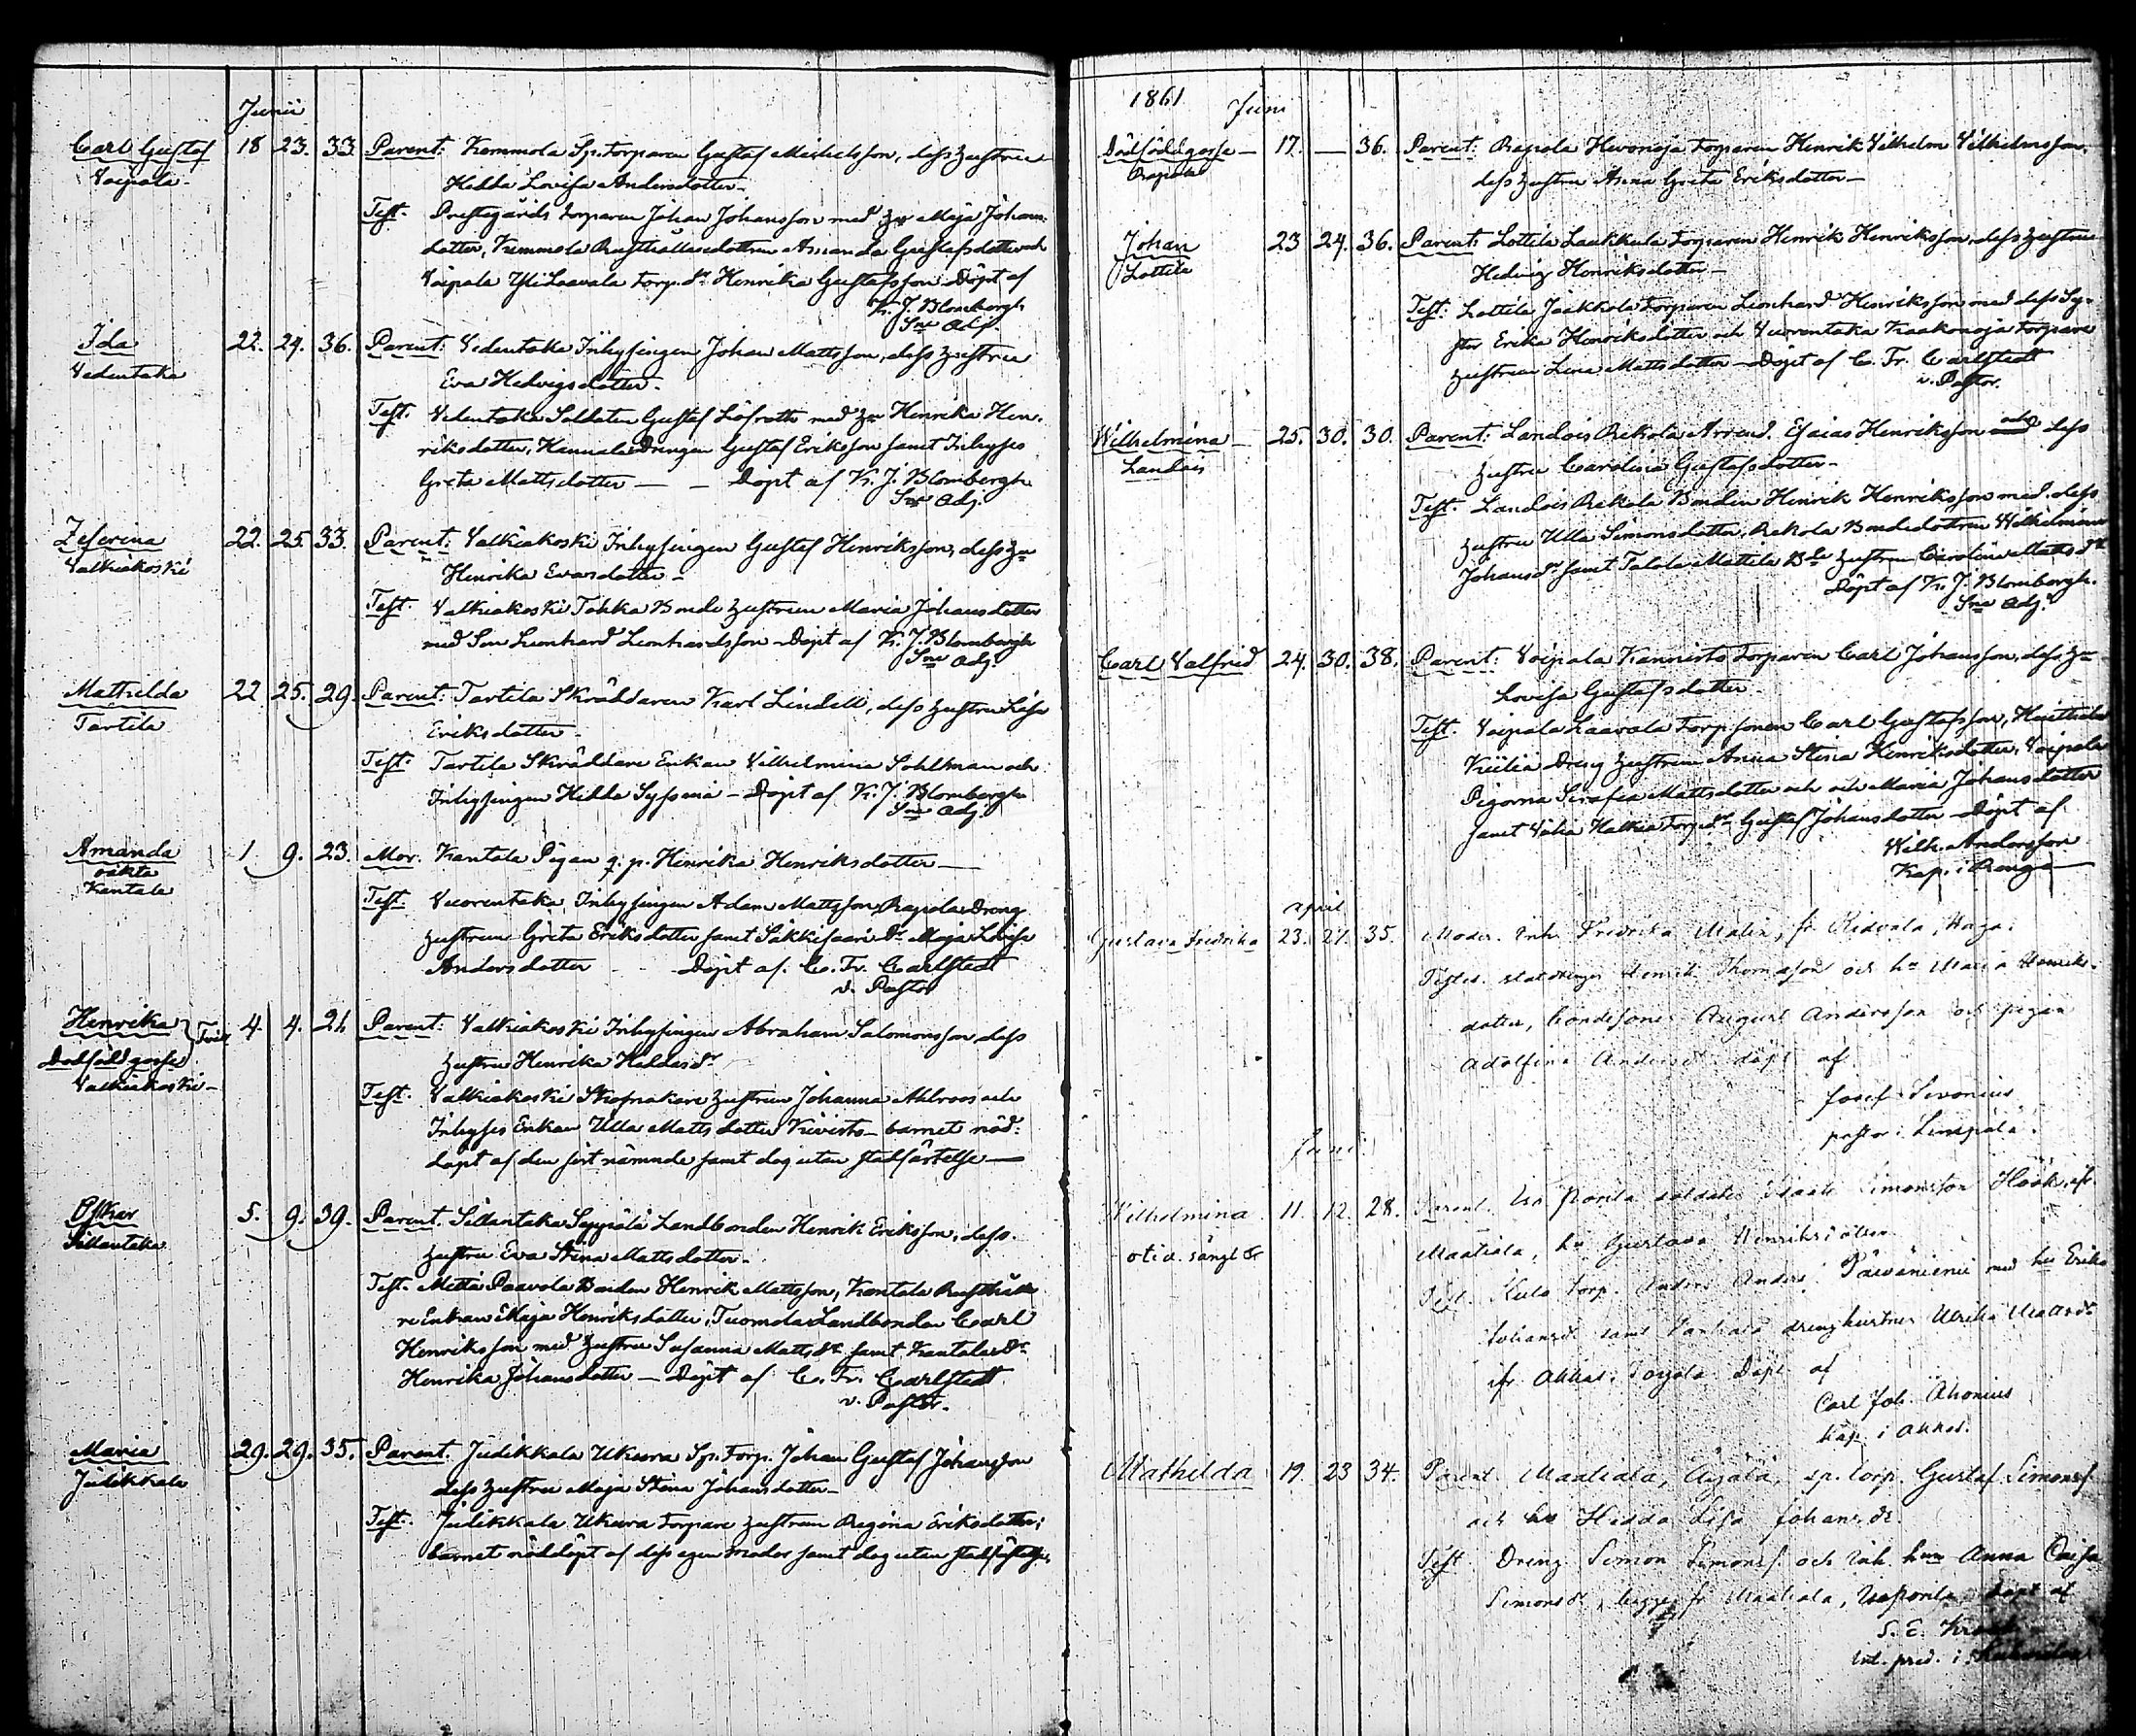 Junii
Carl Gustaf 18 23. 33 Parent: Kemmola Sp. Torparen Gustaf Michelsson, dess hustru
Voipala. Hedda Lovisa Andersdotter
Test. Prestegårds torparen Johan Johansson med hu Maja Johans
dotter, Kemmola Rusthållaredottren Amanda Gustafsdotter och
Voipala Yli Laavala torp. dr Henrika Gustafsson Döpt af
K. J. Blombergh
Sne Adj.
Ida 22. 24. 36. Parent: Vedentaka Inhysingen Johan Mattsson, dess hustru
Vedentaka Eva Hedvigsdotter.
Test. Vedentaka Soldaten Gustaf Löfroth med hu Henrika Hen-
riksdotter, Kannala Drengen Gustaf Eriksson samt Inhyses
Greta Mattsdotter — — Döpt af K. J. Blombergh
Sne Adj.
Zeferina 22. 25. 33. Parent: Valkiakoski Inhysingen Gustaf Henriksson, dess hu
Valkiakoski Henrika Evasdotter
Test. Valkiakoski Tokka Bonde hustrun Maria Johansdotter
med Son Leonhard Leonhardsson Döpt af K. J. Blombergh
Sne Adj.
Mathilda 22 25. 29. Parent: Tartila Skräddaren Karl Lindell, dess hustru Lisa
Tartila Eriksdotter
Test. Tartila Skräddare Enkan Vilhelmina Sohlman och
Inhysingen Hedda — Döpt af K. J. Blombergh
Sne Adj.
Amanda 1 9. 23. Mor. Kantala Pigan q. p. Henrika Henriksdotter —
oäkta
Kantala Test. Vuorentaka Inhysingen Adam Mattsson, Rapola Dreng
hustrun Greta Eriksdotter samt Säkkisaari Dr Maja Lovisa
Andersdotter Döpt af C. Fr. Carlstedt
v. Pastor
Henrika Tvill 4. 4. 21 Parent: Valkiakoski Inhysingen Abraham Salomonsson, dess
Dödfödd gosse hustru Henrika Heddasdr
Valkiakoski — Test. Valkiakoski Skomakare hustrun Johanna Ahlroos och
Inhyses Enkan Ulla Mattsdotter Kivisto — barnet nöd-
döpt af den sist nämnde samt dog utan stadfästelse —
Oskar 5. 9. 39. Parent. Sillantaka Seppälä Landbonden Henrik Eriksson, dess
Sillantaka hustru Eva Stina Mattsdotter.
Test. Metta Paavola Bonden Henrik Mattsson, Kantala Rusthålla
re Enkan Maja Henriksdotter, Tuomola Landbonden Carl
Henriksson med hustru Susanna Mattsdr samt Kantala dr
Henrika Johansdotter — Döpt af C. Fr. Carlstedt
v. Pastor.
Maria 29. 29. 35. Parent. Judikkala Ukura Sp. Torp. Johan Gustaf Johansson
Judikkala dess hustru Maja Stina Johansdotter —
Test. Judikkala Ukura torpare hustrun Regina Eriksdotter;
barnet nöddöpt af dess egen moder samt dog utan stadfästelse.
1861 Juni
Dödfödd gosse — 17. — 36. Parent: Rapola Hevonoja torparen Henrik Vilhelm Vilhelmsson,
Rapola dess hustru Anna Greta Eriksdotter —
Johan 23 24. 36. Parent: Lottila Laukkula torparen Henrik Henriksson, dess hustru
Lottila Hedvig Henriksdotter —
Test: Lottila Jaakkola torparen Leonhard Henriksson med dess Sy-
ster Erika Henriksdotter och Vuorentaka Kaakonoja torpare
hustrun Lena Mattsdotter — Döpt af C. Fr. Carlstedt
v. Pastor.
Wilhelmina — 25. 30. 30. Parent: Landois Rekola Arrend. Esaias Henriksson och dess
Landois hustru Carolina Gustafsdotter —
Test. Landois Rekola Bonden Henrik Henriksson med dess
hustru Ulla Simonsdotter, Rekola Bondedottren Wilhelmina
Johansdr samt Talola Mattila Bde hustrun Carolina Mattsdr
Döpt af K. J. Blombergh.
Sne Adj.
Carl Valfrid 24. 30. 38. Parent: Voipala Kannisto torparen Carl Johansson, dess hu
Lovisa Gustafsdotter
Test. Voipala Laavala Torp. sonen Carl Gustafsson,
Dreng hustrun Anna Stina Henriksdotter, Voipala
Pigorna Serafia Mattsdotter och Maria Johansdotter
samt Torp. dr Johansdotter Döpt af
Wilh. Andersson
Kap. i Renga —
April
Gustava Fredrika 23. 27. 35. Moder. Inh. Fredrika Malin, fr. Ridvala, Haga.
Testes. statdrengen Henrik Thomasson och hu Maria Henriks-
dotter, bondesonen August Andersson och pigan
Adolfina Andersdr döpt af
Josef Sivonius
pastor i Lempälä.
Juni
Wilhelmina 11. 12. 28. Parent. soldaten Simonsson Höök, ifr.
otid. sängl. Maatiala, hu Gustava Henriksdotter
Test. Kulo torp. Anders Anders. Päivänienni med hu Erika
Johansdr samt drenghustrun Ulrika Mattsdr
ifr. Akkas, Toijala Döpt af
Carl Joh. Ahonius
kap. i Akkas.
Mathilda 19. 23 34. Parent. Maatiala, Äijälä, sp. torp. Gustaf Simonss.
och hu Hedda Lisa Johansdr.
Test. Dreng. Simon Simonss. och inh. hun Anna Caisa
Simonsdr, begge fr. Maatiala, Uskonla, Döpt af
S. E.
vic. pred. i